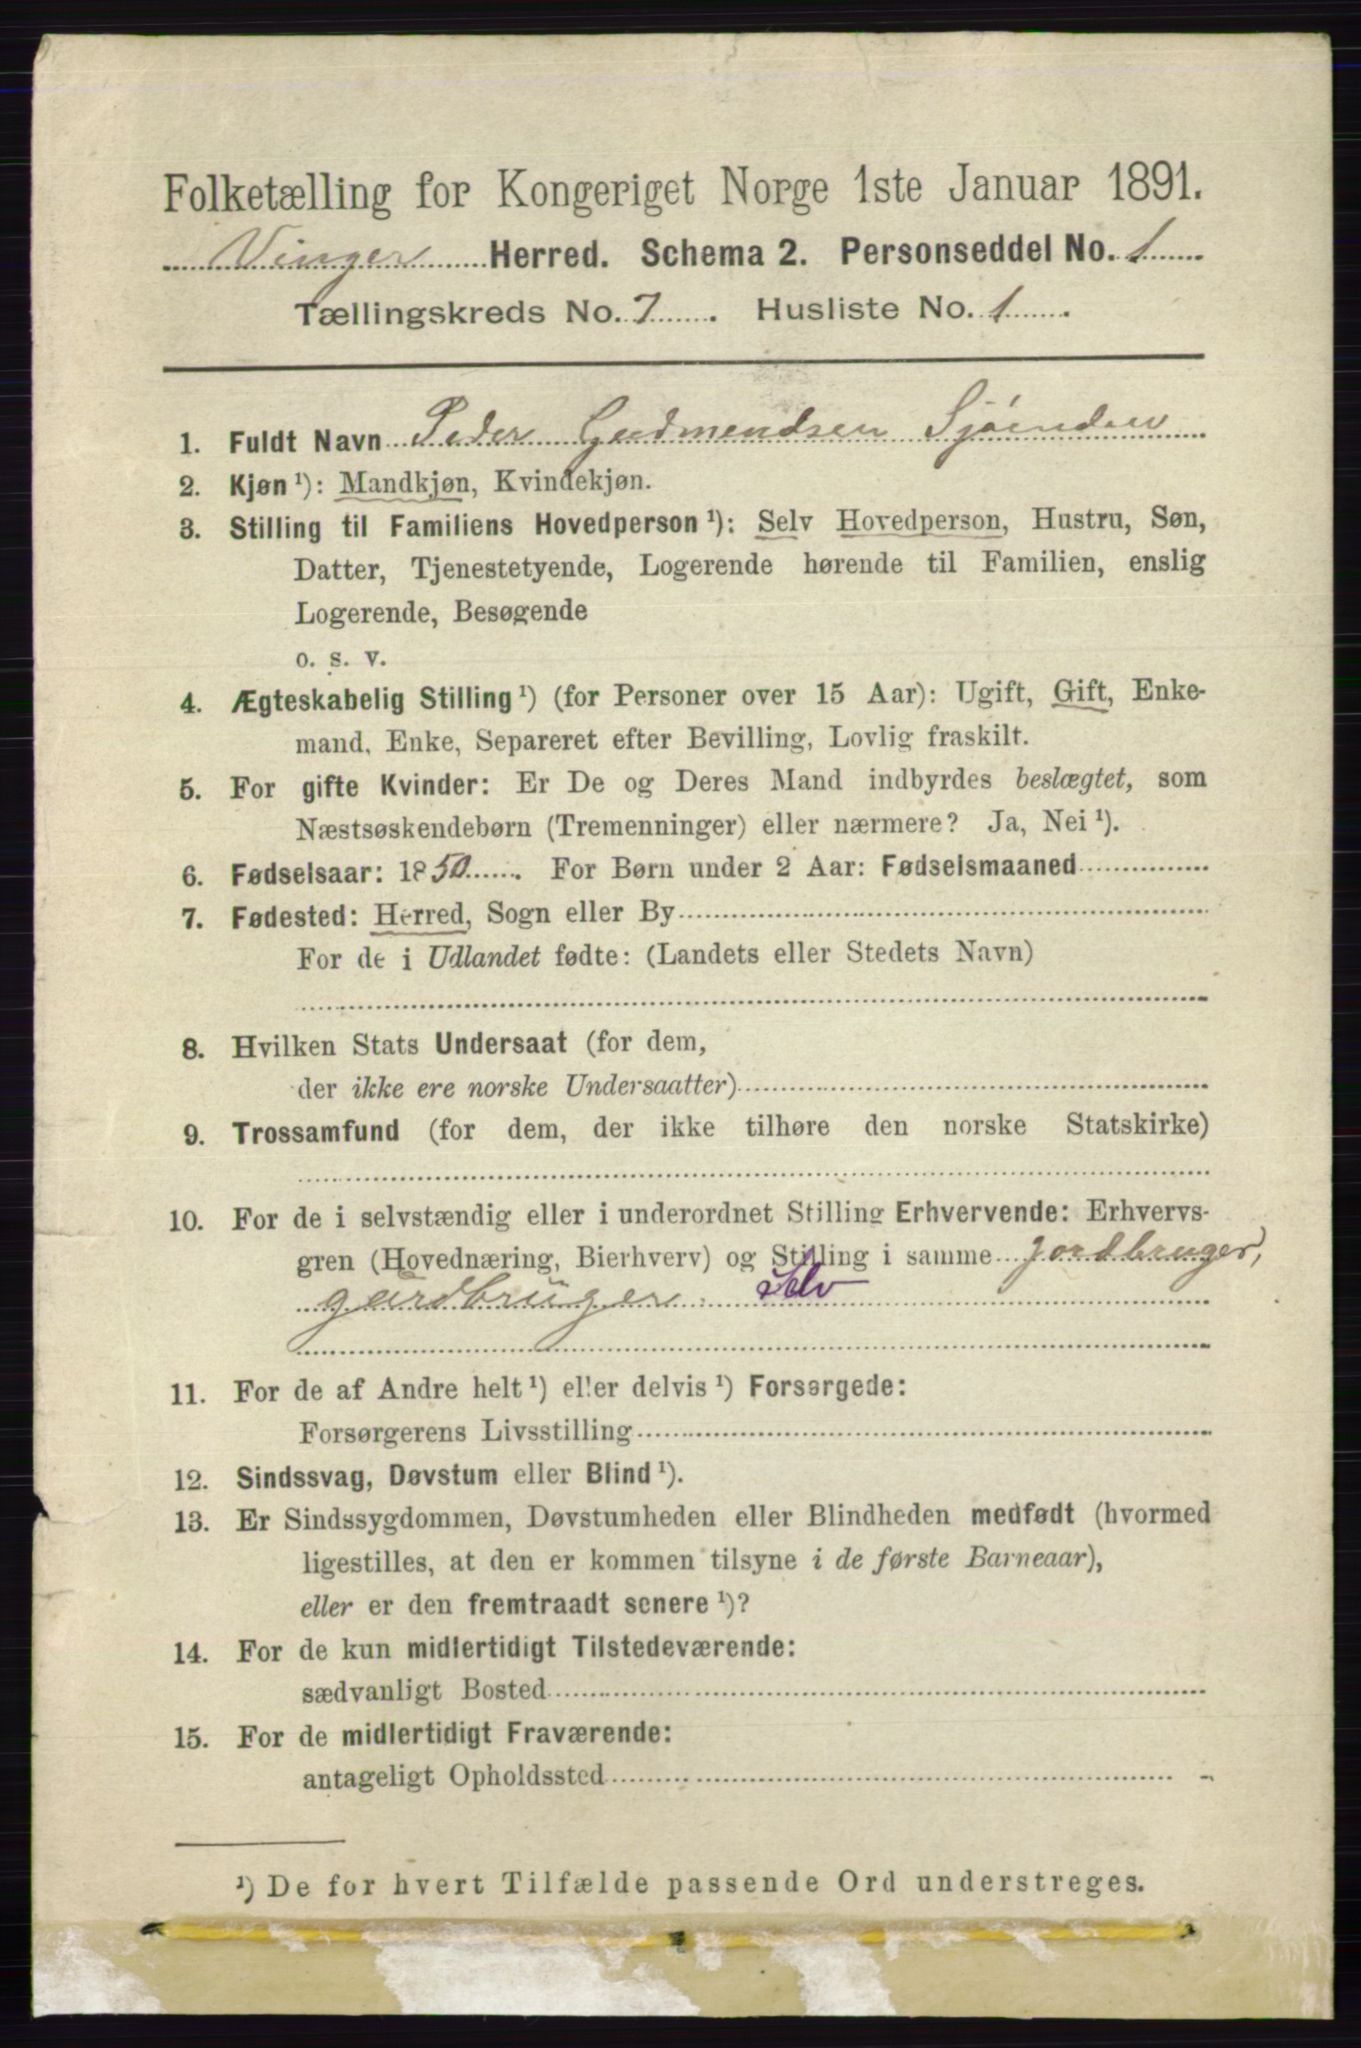 Folketælling for Kongeriget Norge 1ste Januar 1891.
Vinger Herred. Schema 2. Personseddel No. 1
Tællingskreds No. 7. Husliste No. 1.
1. Fuldt Navn Peder Gudmendsen
2. Kjøn ¹): Mandkjøn, Kvindekjøn.
3. Stilling til Familiens Hovedperson ¹): Selv Hovedperson, Hustru, Søn,
Datter, Tjenestetyende, Logerende hørende til Familien, enslig
Logerende, Besøgende
o. s. v.
4. Ægteskabelig Stilling ¹) (for Personer over 15 Aar): Ugift, Gift, Enke-
mand, Enke, Separeret efter Bevilling, Lovlig fraskilt.
5. For gifte Kvinder: Er De og Deres Mand indbyrdes beslægtet, som
Næstsøskendebørn (Tremenninger) eller nærmere? Ja, Nei ¹).
6. Fødselsaar: 1850. For Børn under 2 Aar: Fødselsmaaned
7. Fødested: Herred, Sogn eller By
For de i Udlandet fødte: (Landets eller Stedets Navn)
8. Hvilken Stats Undersaat (for dem,
der ikke ere norske Undersaatter)
9. Trossamfund (for dem, der ikke tilhøre den norske Statskirke)
10. For de i selvstændig eller i underordnet Stilling Erhvervende: Erhvervs-
gren (Hovednæring, Bierhverv) og Stilling i samme jordbruger,
gårdbruger. Selv
11. For de af Andre helt ¹) eller delvis ¹) Forsørgede:
Forsørgerens Livsstilling
12. Sindssvag, Døvstum eller Blind ¹).
13. Er Sindssygdommen, Døvstumheden eller Blindheden medfødt (hvormed
ligestilles, at den er kommen tilsyne i de første Barneaar),
eller er den fremtraadt senere ¹)?
14. For de kun midlertidigt Tilstedeværende:
sædvanligt Bosted
15. For de midlertidigt Fraværende:
antageligt Opholdssted
¹) De for hvert Tilfælde passende Ord understreges.